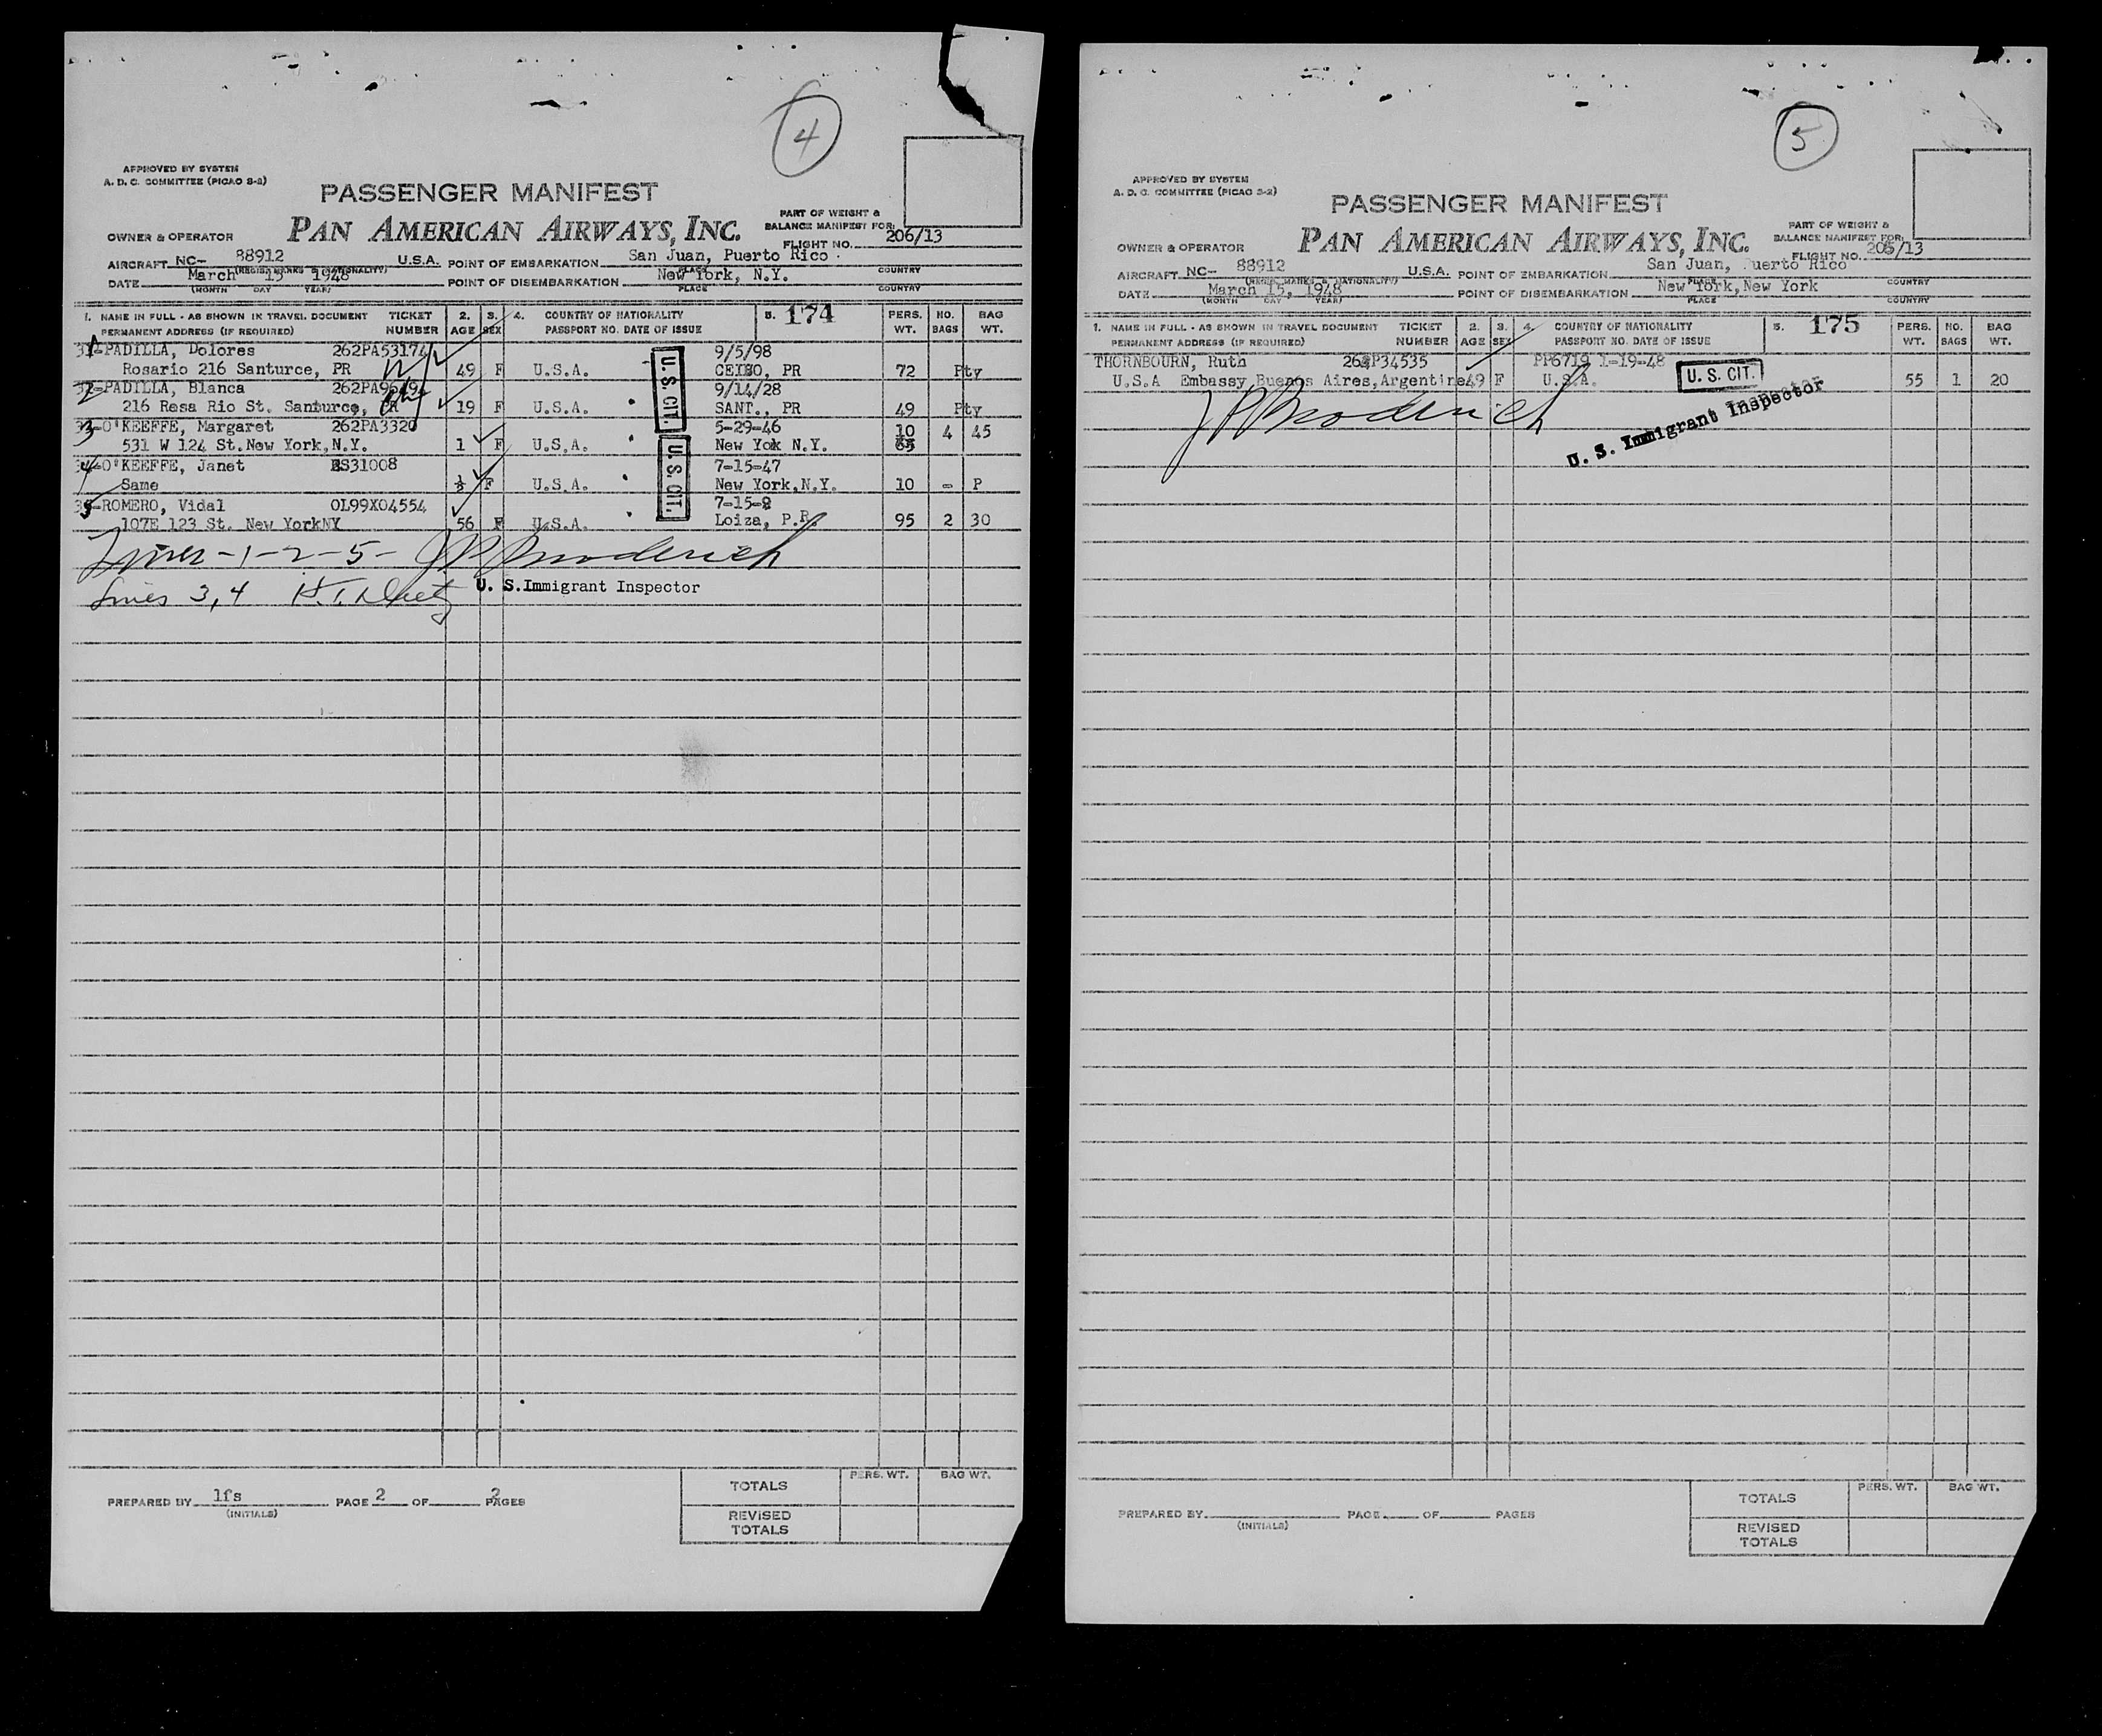 4
APPROVED BY SYSTEM
A. D. C. COMMITTEE (PICAO S-2)
PASSENGER MANIFEST
PAN AMERICAN AIRWAYS, INC.
PART OF WEIGHT &
BALANCE MANIFEST FOR:
OWNER & OPERATOR
FLIGHT NO. 206/13
AIRCRAFT NC- 88912 U.S.A. POINT OF EMBARKATION San Juan, Puerto Rico
(REGIS. MARKS & NATIONALITY) PLACE COUNTRY
DATE March 15 1948 POINT OF DISEMBARKATION New York, N.Y.
(MONTH DAY YEAR) PLACE COUNTRY
1. NAME IN FULL - AS SHOWN IN TRAVEL DOCUMENT TICKET 2. 3. 4. COUNTRY OF NATIONALITY 5. 174 PERS. NO. BAG
PERMANENT ADDRESS (IF REQUIRED) NUMBER AGE SEX PASSPORT NO. DATE OF ISSUE WT. BAGS WT.
PADILLA, Dolores 262PA53174 9/5/98
Rosario 216 Santurce, PR 49 F U.S.A. CEIBO, PR 72 Pty
PADILLA, Blanca 9/14/28
216 Rosa Rio St. Santurce, PR 19 F U.S.A. SANT., PR 49 Pty
U. S. CIT.
O'KEEFFE, Margaret 262PA3320 5-29-46 10
531 W 124 St.New York,N.Y. 1 F U.S.A. New Yok N.Y. 4 45
O'KEEFFE, Janet 7-15-47
Same F U.S.A. New York,N.Y. 10 - P
U. S. CIT.
ROMERO, Vidal OL99X04554 7-15-
107E 123 St. New YorkNY 56 F U.S.A. Loiza, P.R. 95 2 30
Lines -1-2-5- J P Broderick
Lines 3,4
U. S.Immigrant Inspector
PREPARED BY lfs PAGE 2 OF 2 PAGES
(INITIALS)
PERS. WT. BAG WT.
TOTALS
REVISED
TOTALS
5
APPROVED BY SYSTEM
A. D. C. COMMITTEE (PICAO S-2)
PASSENGER MANIFEST
PAN AMERICAN AIRWAYS, INC.
PART OF WEIGHT &
BALANCE MANIFEST FOR:
OWNER & OPERATOR
FLIGHT NO.
AIRCRAFT NC- 88912 U.S.A. POINT OF EMBARKATION San Juan, Puerto Rico
(REGIS. MARKS & NATIONALITY) PLACE COUNTRY
DATE March 15, 1948 POINT OF DISEMBARKATION New York,New York
(MONTH DAY YEAR) PLACE COUNTRY
1. NAME IN FULL - AS SHOWN IN TRAVEL DOCUMENT TICKET 2. 3. 4. COUNTRY OF NATIONALITY 5. 175 PERS. NO. BAG
PERMANENT ADDRESS (IF REQUIRED) NUMBER AGE SEX PASSPORT NO. DATE OF ISSUE WT. BAGS WT.
THORNBOURN, Ruth PP6719 1-19-48
U.S.A Embassy,Buenos Aires,Argentine49 F U.S.A. U. S. CIT. 55 1 20
J P Broderick
U. S. Immigrant Inspector
PREPARED BY PAGE OF PAGES
(INITIALS)
PERS. WT. BAG WT.
TOTALS
REVISED
TOTALS